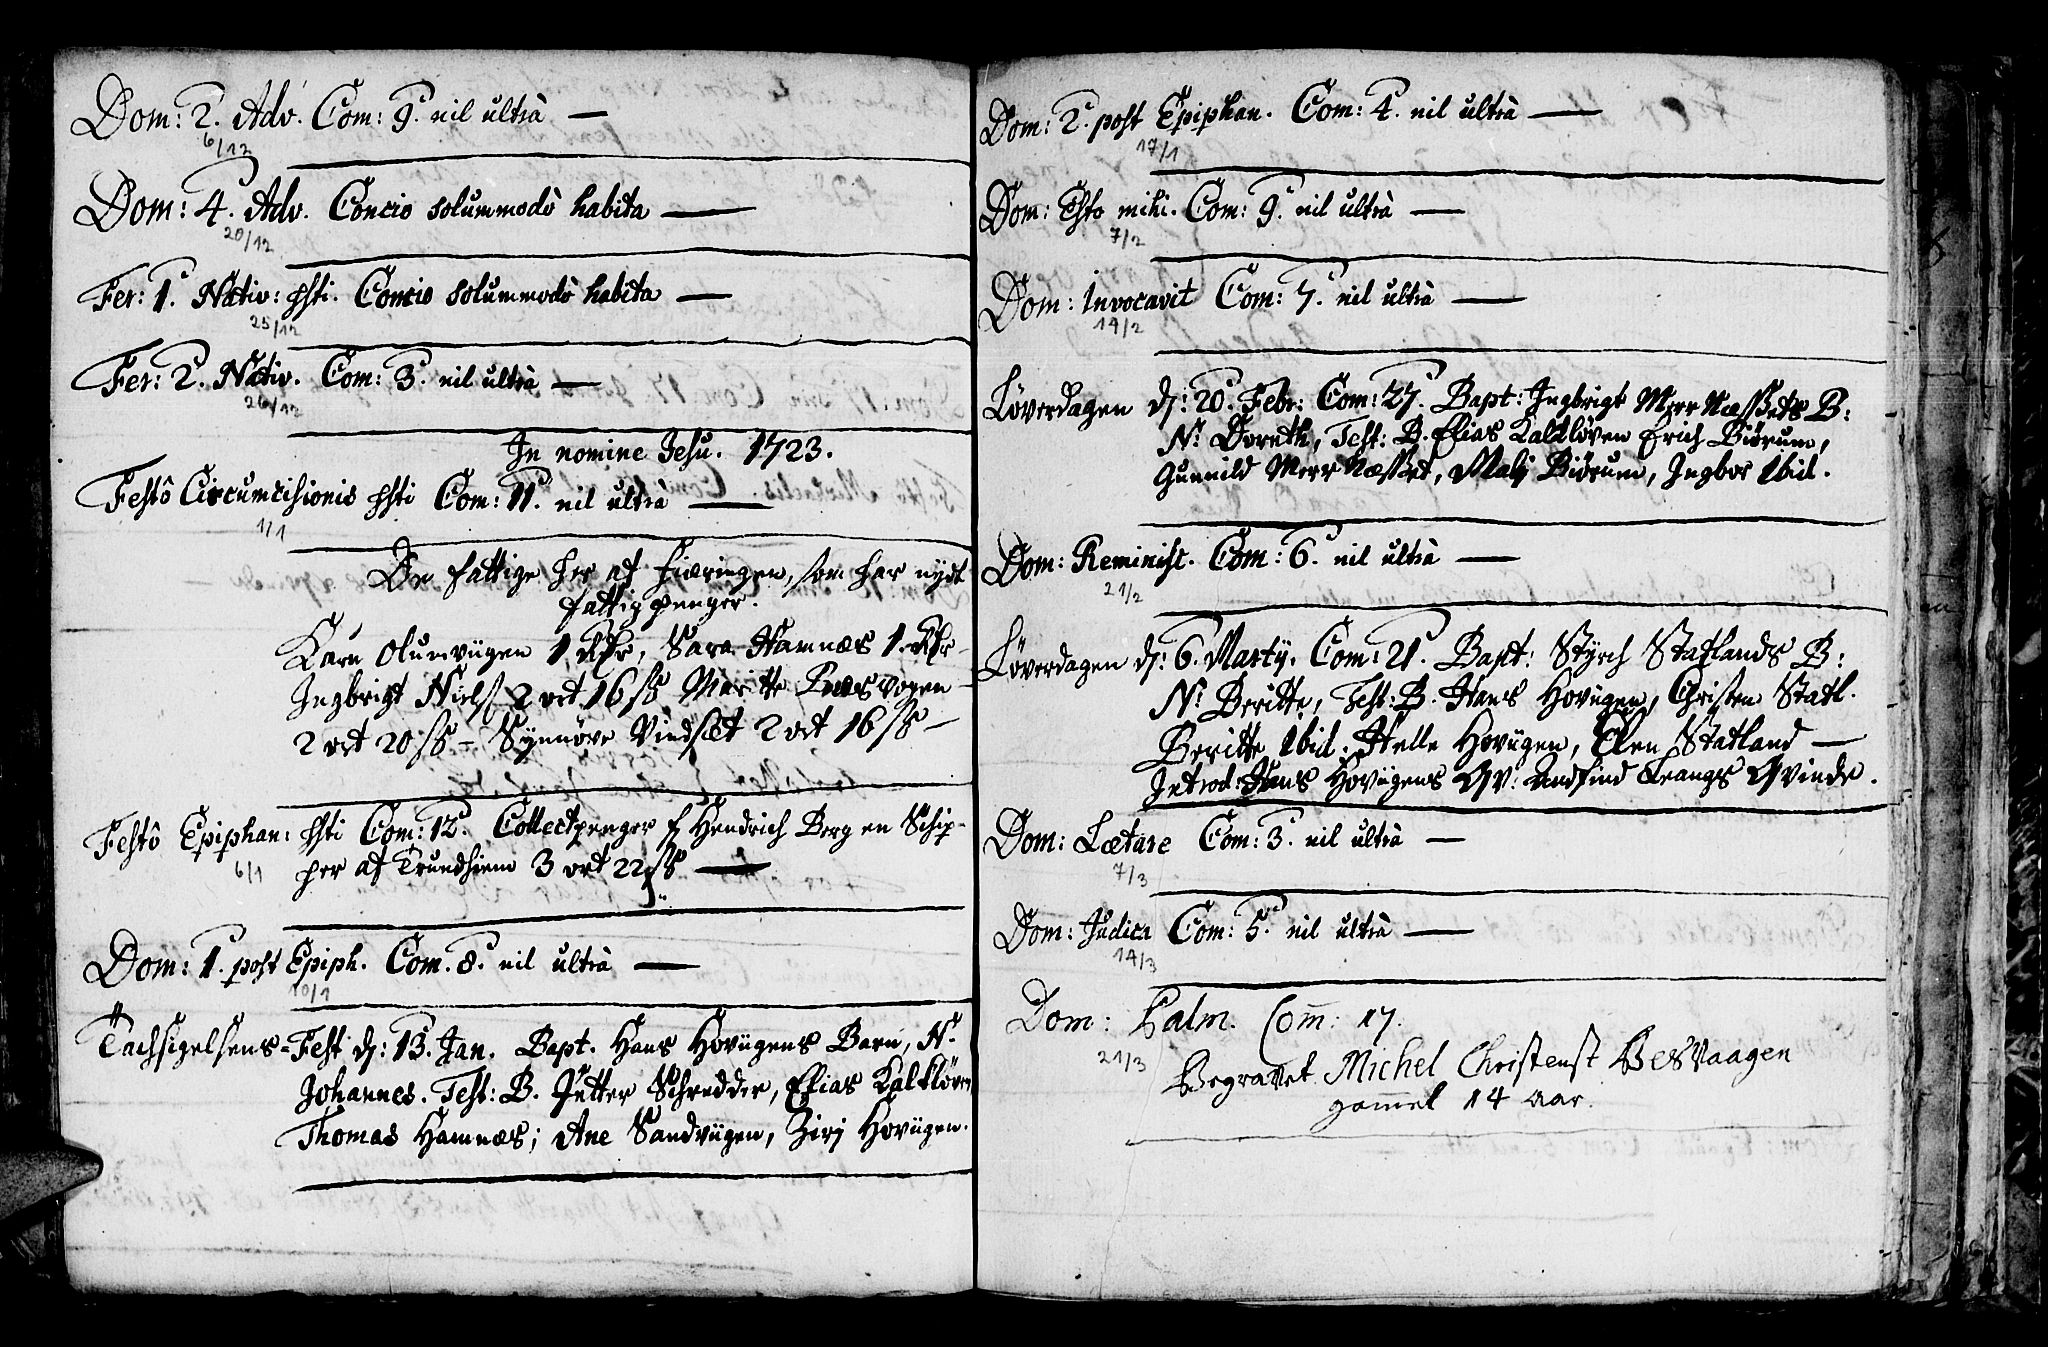 Dom: 2. Adv. Com: 9. nil ultrà —
6/12
Dom: 4. Adv. Concio solummodò habita —
20/12
Fer: 1. Nativ: Xsti. Concio solummodò habita —
25/12
Fer: 2. Nativ. Com: 3. nil ultrà —
26/12
In nomine Jesu. 1723.
Festô Circumcisionis Xsti Com: 11. nil ultrà —
1/1
De fattige her af Fiæringen, som har nydt
fattigpenger.
Karn Olumvügen 1 Rdr, Sara Hamnæs 1. Rdr
Ingbrigt Niels 2 ort 16 ß Marite Besvogen
2 ort 20 ß – Synnöve Vindsæt 2 ort 16 ß –
Festô Epiphan: Xsti Com: 12. Collectpenger f Hendrich Berg en Schip-
6/1
per af Trundhiem 3 ort 22 ß —
Dom: 1. post Epiph. Com. 8. nil ultrà —
10/1
Tachsigelsens-Fest d: 13. Jan. Bapt. Hans Hovügens Barn, N.
Johannes. Test: B. Petter Schredder, Elias Kaltløven
Thomas Hamnæs; Ane Sandvügen, Zirj Hovügen.
Dom: 2. post Epiphan. Com: 4. nil ultrà —
17/1
Dom: Esto mihi. Com: 9. nil ultrà —
7/2
Dom: Invocavit Com: 7. nil ultrà —
14/2
Løverdagen d: 20. Febr: Com: 27. Bapt: Ingbrigt Merr Næssets B:
N. Doreth, Test: B. Elias Kaltløven Erich Biörum,
Gunnild Merr Næsset, Malj Biörum, Ingbor Ibid.
Dom: Reminisc. Com: 6. nil ultrà —
21/2
Løverdagen d: 6. Martij. Com: 21. Bapt: Styrch Statlands B:
N. Beritte, Test: B. Hans Hovügen, Christen Statl.
Beritte Ibid. Helle Hovügen, Elen Statland —
Introd: Hans Hovügens Qv: Andfind Leangs Qvinde.
Dom: Lætare Com: 3. nil ultrà —
7/3
Dom: Judica Com: 5. nil ultrà —
14/3
Dom: Palm. Com: 17.
21/3
Begravet Michel Christenst Besvaagen
gamel 14 aar.